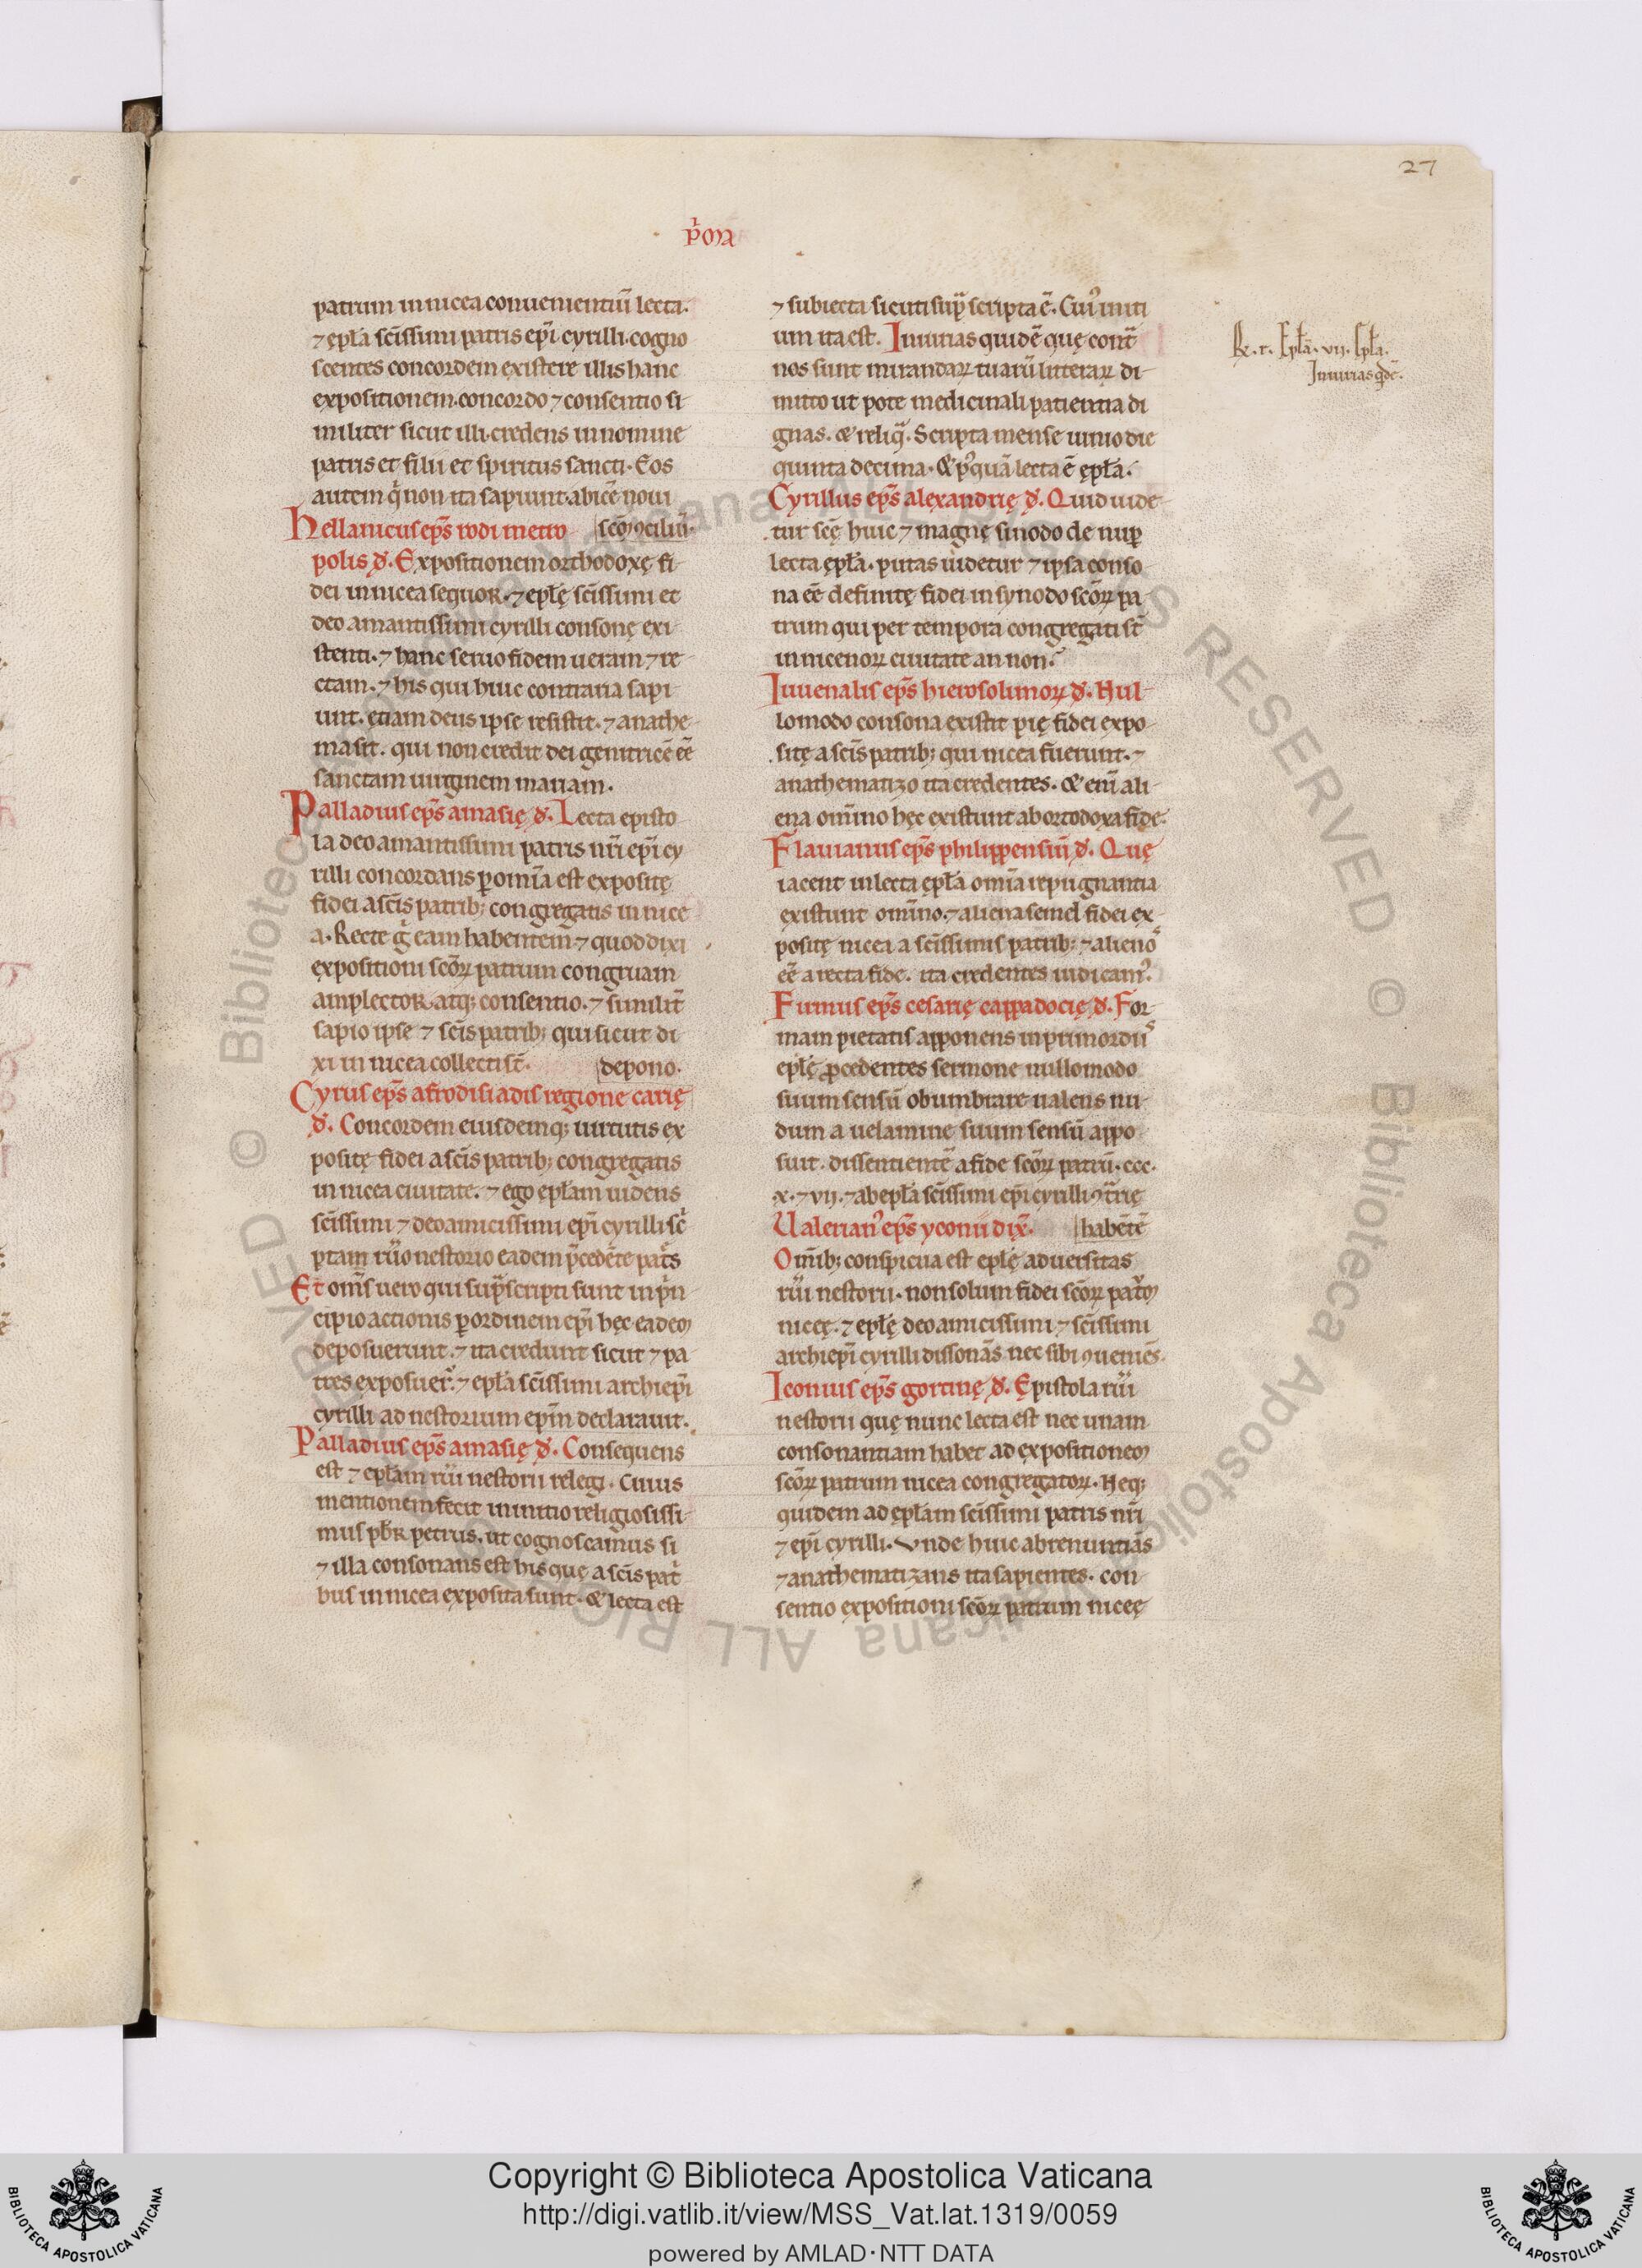 27
p̄ma
patrum in nicea conuenientiū lecta.
⁊ ep̄la sc̄issimi patris ep̄i cyrilli. cogno
scentes concordem existere illis hanc
expositionem. concordo ⁊ consentio si
militer sicut illi. credens in nomine
patris et filii et spiritus sancti. Eos
autem q̄ non ita sapiunt. abicē noui
Hellanicus ep̄s rodi metro sc̄m ꝯciliū.
polis d̄. Expositionem orthodoxę fi
dei in nicea sequor. ⁊ ep̄lę sc̄issimi et
deo amantissimi cyrilli consonę exi
stenti. ⁊ hanc seruo fidem ueram ⁊ re
ctam. ⁊ his qui huic contraria sapi
unt. etiam deus ipse resistit. ⁊ anathe
ma sit. qui non credit dei genitricē eē
sanctam uirginem mariam.
Palladius ep̄s amasię d̄. Lecta episto
la deo amantissimi patris nr̄i ep̄i cy
rilli concordans ꝑ omīa est expositę
fidei a sc̄is patrib; congregatis in nice
a. Recte g̊ eam habentem ⁊ quod dixi
expositioni sc̄oꝝ patrum congruam
amplector. atq; consentio. ⁊ similit̄
sapio ipse ⁊ sc̄is patrib; qui sicut di
xi in nicea collecti st̄. depono.
Cyrus ep̄s afrodisiadis regione carię
d̄. Concordem eiusdemq; uirtutis ex
positę fidei a sc̄is patrib; congregatis
in nicea ciuitate. ⁊ ego ep̄lam uidens
sc̄issimi ⁊ deo amicissimi ep̄i cyrilli sc̄
ptam rūo nestorio eadem p̄cedēte pat̄s
Et om̄s uero qui sup̄scripti sunt in p̄n
cipio actionis ꝑ ordinem ep̄i hęc eadem
deposuerunt. ⁊ ita credunt sicut ⁊ pa
tres exposuer̄. ⁊ ep̄la sc̄issimi archiep̄i
cyrilli ad nestorium ep̄m declarauit.
Palladius ep̄s amasię d̄. Consequens
est ⁊ ep̄lam rūi nestorii relegi. Cuius
mentionem fecit in initio religiosissi
mus pb̄r petrus. ut cognoscamus si
⁊ illa consonans est his quę a sc̄is pat̄
bus in nicea exposita sunt. & lecta est
⁊ subiecta sicuti sup̄ scripta ē. Cui᾽ initi
um ita est. Iniurias quidē quę cont̄
nos sunt mirandaꝝ tuarū litteraꝝ di
mitto ut pote medicinali patientia di
gnas. & reliq̄. Scripta mense iunio die
quinta decima. & p᾽quā lecta ē ep̄la.
Cyrillus ep̄s alexandrię d̄. Quid uide
tur sc̄ę huic ⁊ magnę sinodo de nuꝑ
lecta ep̄la. putas uidetur ⁊ ipsa conso
na eē definitę fidei in synodo sc̄oꝝ pa
trum qui per tempora congregati st̄
in nicenoꝝ ciuitate an non?
Iuuenalis ep̄s hierosolimoꝝ d̄. Nul
lomodo consona existit pię fidei expo
sitę a sc̄is patrib; qui nicea fuerunt. ⁊
anathematizo ita credentes. & enī ali
ena om̄ino hęc existunt ab ortodoxa fide.
Flauianus ep̄s philippensiū d̄. Quę
iacent in lecta ep̄la omīa repugnantia
existunt om̄ino. ⁊ aliena semel fidei ex
positę nicea a sc̄issimis patrib; ⁊ alieno^s
eē a recta fide. ita credentes iudicam᾽.
Firmus ep̄s cesarię cappadocię d̄. For
mam pietatis apponens in primordii^s
ep̄lę ꝓcedentes sermone nullomodo
suum sensū obumbrare ualens nu
dum a uelamine suum sensū appo
suit. dissentientē a fide sc̄oꝝ patrū. ccc.
x. ⁊ vij. ⁊ ab ep̄la sc̄issimi ep̄i cyrilli ꝯt̄rię
Ualerian᾽ ep̄s yconii dix̄. habētē
Om̄ib; conspicua est ep̄lę aduersitas
rūi nestorii. non solum fidei sc̄oꝝ pat̄m
nicęę. ⁊ ep̄lę deo amicissimi ⁊ sc̄issimi
archiep̄i cyrilli dissonās. nec sibi ꝯueniēs.
Iconius ep̄s gortinę d̄. Epistola rūi
nestorii quę nunc lecta est nec unam
consonantiam habet ad expositionem
sc̄oꝝ patrum nicea congregatoꝝ. Neq;
quidem ad ep̄lam sc̄issimi patris nr̄i
⁊ ep̄i cyrilli. Unde huic abrenuntiās
⁊ anathematizans ita sapientes. con
sentio expositioni sc̄oꝝ patrum niceę
Re. r. Ep̄la. vij. Ep̄la.
Iniurias qdē.
Copyright © Biblioteca Apostolica Vaticana
http://digi.vatlib.it/view/MSS_Vat.lat.1319/0059
powered by AMLAD·NTT DATA
BIBLIOTECA APOSTOLICA VATICANA
BIBLIOTECA APOSTOLICA VATICANA